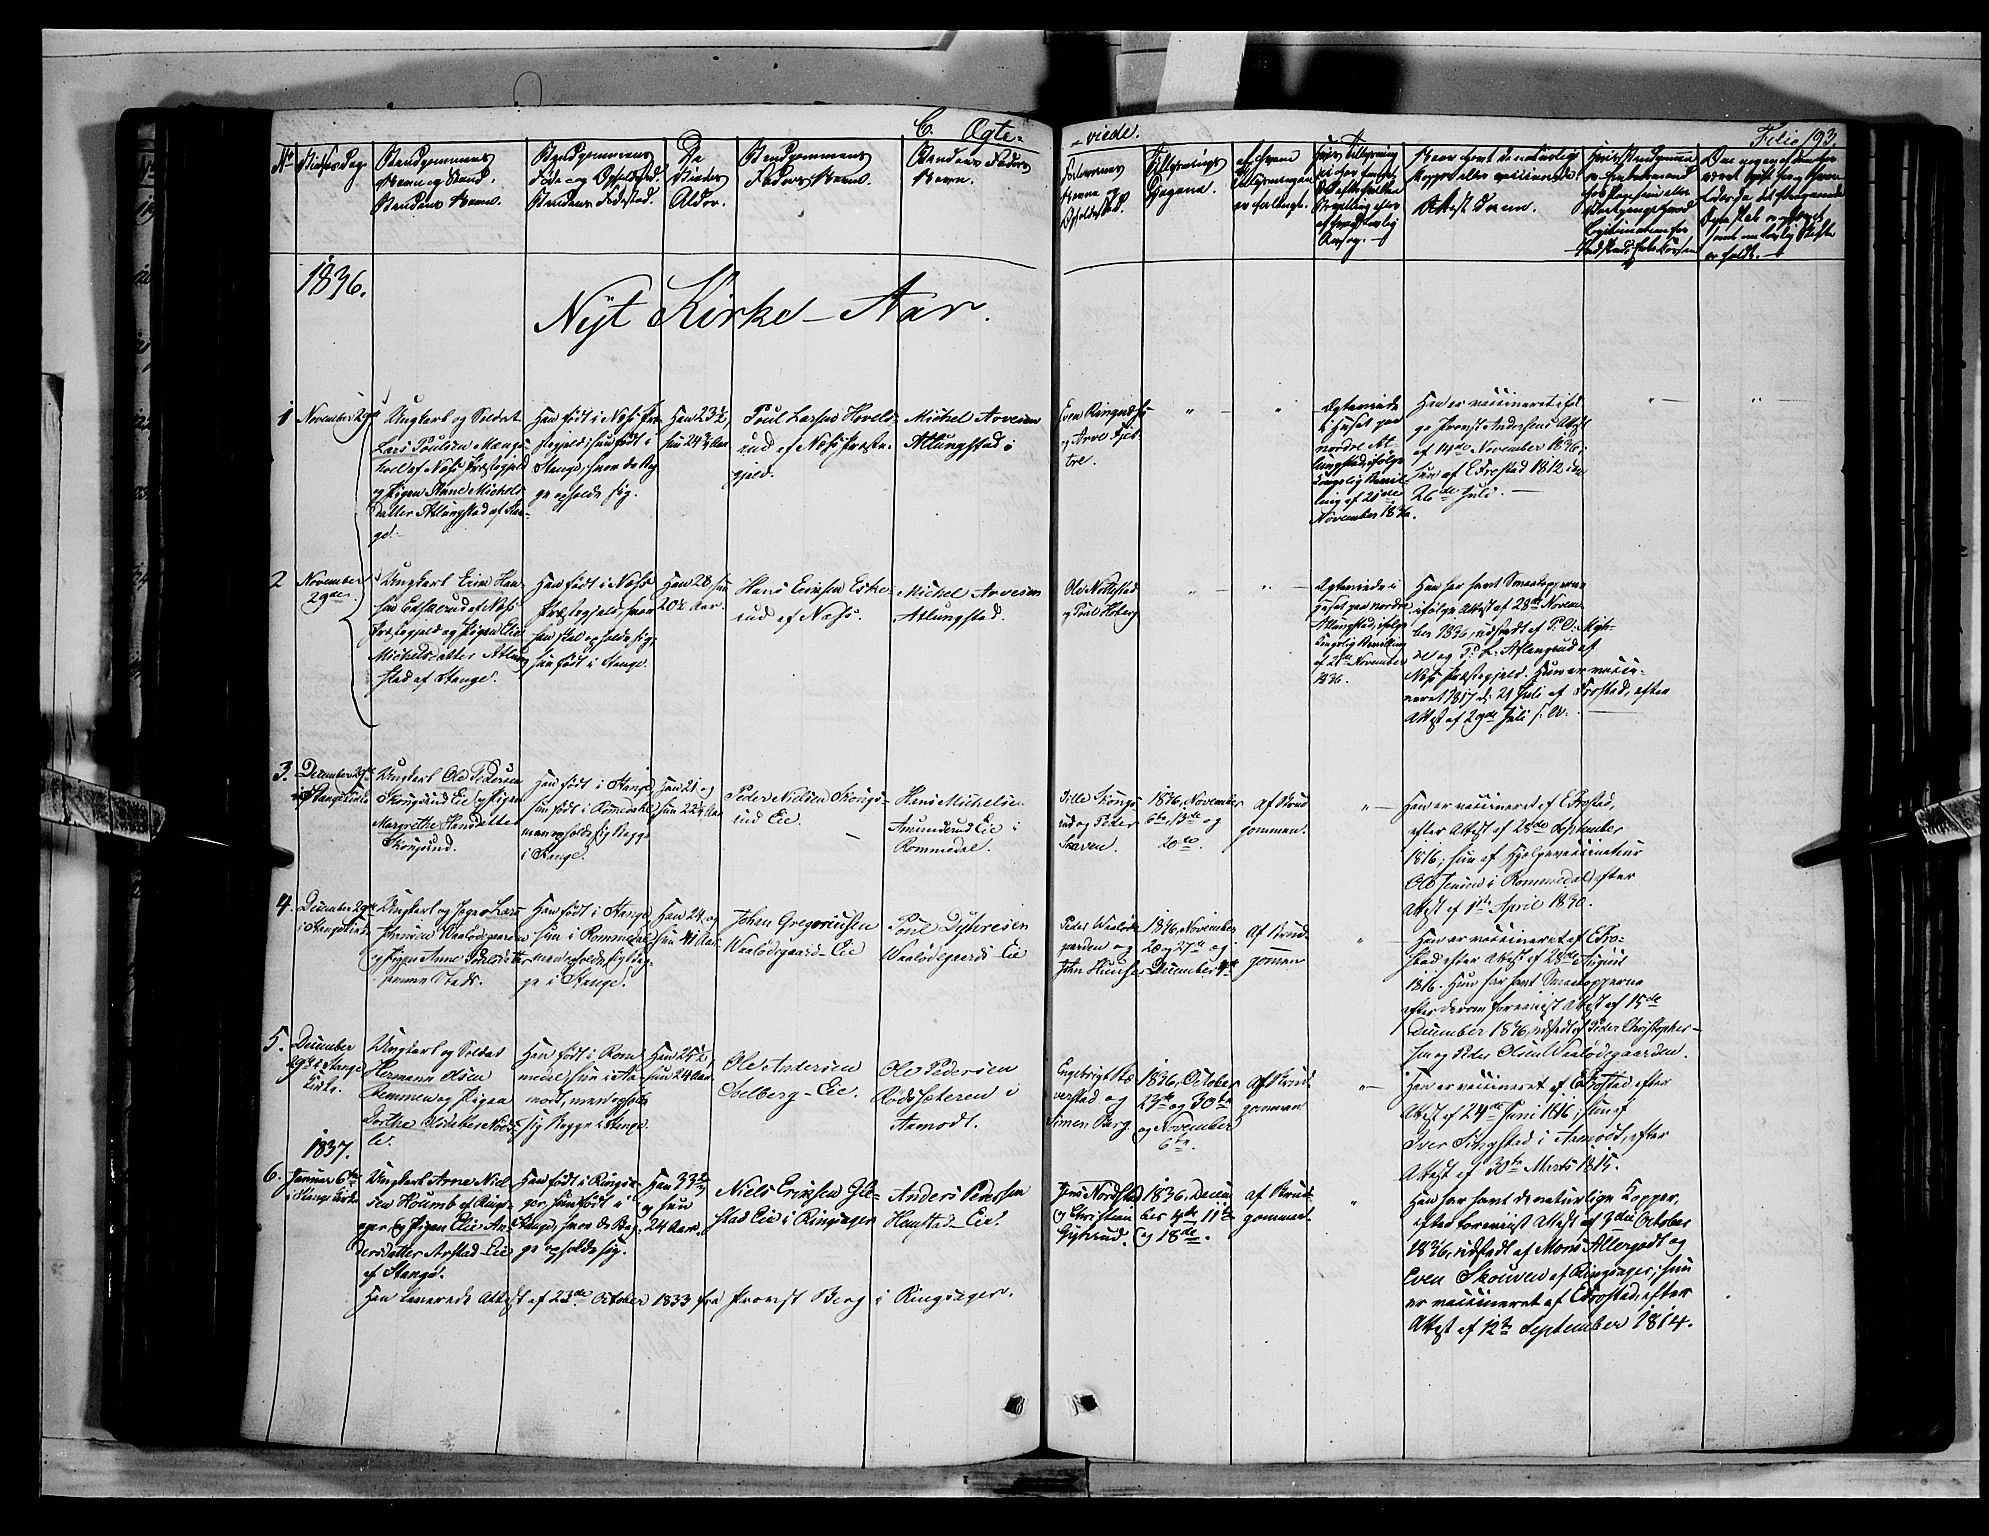 C. Ægte-
-viede.
Folio 193.
No
Vielses Dag.
Brudgommens
Navn og Stand.
Brudens Navn.
Brudgommens
Føde og Opholdsted.
Brudens Fødested.
De
Viedes
Alder.
Brudgommens
Faders Navn.
Brudens Faders
Navn.
Forlovernes
Navne og
Opholdssted.
Tillysnings
Dagene.
af hvem
Tillysningen
er forlangt.
1836.
Nyt Kirke-Aar.
1
November 29de
Ungkarl og Soldat
Lars Poulsen
af Næss Præstegjeld
og Pigen Anne Michels
datter Atlungstad af Stan-
ge.
Han født i Næss Præ-
stegjeld; hun født i
Stange, hvor de Beg-
ge opholde sig.
Han 23½,
hun 24¾ Aar.
Poul Larsen Hovels-
rud af Næss Præste-
gjeld.
Michel Arvesen
Atlungstad
Even Ringnæss
og Arve Fjet-
tre.
Ægteviede
i Huset paa
nordre At-
lungstad, ifølge
kongelig Bevil-
ling af 21de
November 1836.
Han er vaccineret iføl-
ge Provst Andersens Attest
af 14de November 1836;
hun af E. Frostad 1812 den
26de Juli.
2
November
29de.
Ungkarl Erik Han-
sen Eskerud af Næss
Præstegjeld og Pigen Elie
Michelsdatter Atlung-
stad af Stange.
Han født i Næss
Præstegjeld, hvor
han skal opholde sig;
hun født i Stange.
Han 28, hun
20½ Aar.
Hans Eriksen Eske-
rud af Næss.
Michel Arvesen
Atlungstad.
Ole Nøttestad
og Poul Hoberg
Ægteviede i
Huset paa nordre
Atlungstad, ifølge
kongelig Bevilling
af 21de November
1836.
Han har havt Smaakopperne
ifølge Attest af 28de Novem-
ber 1836, udstedt af P. O. Myh-
re og P. L. Aflangrud af
Næss Præstegjeld. Hun er vacci-
neret 1817 d: 21 Juli af Frostad, efter
Attest af 29de Juli s. A.
3.
December 29de
i Stange Kirke
Ungkarl Ole Pedersen
Skongsrud Eie og Pigen
Margrethe Hansdatter
Skongsrud.
Han født i Stange,
hun født i Romedal,
men opholde sig Begge
i Stange.
Han 21 og
hun 22¼ Aar.
Peder Nielsen Skongs-
rud Eie.
Hans Michelsen
Amunderud Eie i
Rommedal.
Tille Skongs-
rud og Peder
Skaven.
1836, November
6te, 13de og
20de.
af Brud-
gommen.
Han er vaccineret af E. Frostad,
efter Attest af 28de September
1816; hun af Hjelpevaccinateur
Ole Jensen i Rommedal, efter
Attest af 1ste April 1830.
4.
December 29de
i Stange Kirke
Ungkarl og Jæger Lars
Johnsen Vaalødegaarden
og Pigen Anne Poulsdatter
samme Steds.
Han født i Stange,
hun i Rommedal,
men opholde sig Beg-
ge i Stange.
Han 24 og
hun 41 Aar.
Johan Gregoriusen
Vaalødegaards Eie
Poul Dyhresen
Vaalødegaards Eie
Peder Vaaløde-
gaarden og
John Huuse
1836, November
20 og 27de og
December 4de
af Brud-
gommen
Han er vaccineret af E. Fro-
stad efter Attest af 28de August
1816. Hun har havt Smaakopperne
efter derom foreviist Attest af 15de
December 1836, udstedt af Peder Christopher-
sen og Peder Olsen Vaalødegaarden.
5.
December
29de i Stange
Kirke.
Ungkarl og Soldat
Hermann Olsen
Remmen og Pigen
Dorthe Olsdatter
Han født i Rom-
medal, hun i Aa-
modt, men opholde
sig Begge i Stange.
Han 25½,
hun 24 Aar.
Ole Andersen
Solberg-Eie.
Ole Pedersen
Rødssæteren i
Aamodt.
Engebrigt Kæ-
verstad og
Simen Berg.
1836, October
23de og 30te
og November
6te.
af Brud-
gommen
Han er vaccineret af E. Frostad efter
Attest af 24de Juni 1816; hun af
Iver Singstad i Aamodt, efter
Attest af 30te Marts 1815.
1837.
6.
Januar 6te
i Stange Kirke
Ungkarl Arne Niel-
sen Houmb af Rings-
ager og Pigen Elie An-
dersdatter Arstad-Eie
af Stange.
Han født i Ringsa-
ger, hun født i
Stange, hvor de Beg-
ge opholde sig.
Han 33⅔
og hun
24 Aar.
Niels Eriksen Gle-
stad Eie i Ringsager
Anders Pedersen
Hemstad-Eie.
Jens Nordstad
og Christian
Gyhrud.
1836, Decem-
ber 4de, 11te
og 18de.
af Brud-
gommen.
Han har havt de naturlige Kopper,
efter foreviist Attest af 9de October
1836, udstedt af Mons Allergodt og
Even Skouven af Ringsager; hun
er vaccineret af E. Frostad, efter
Attest af 12te September 1814.
Han leverede Attest af 23de October 1833 fra Provst Berg i Ringsager.